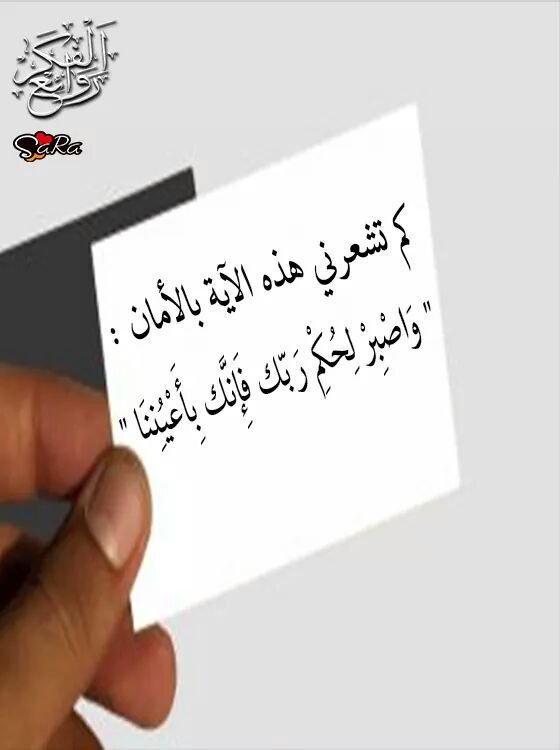 روائع الفكر
SaRa
كم تشعرني هذه الآية بالأمان :
" وَاصْبِرْ لِحُكْمِ رَبّك فِإَنَّك بِأَعْيُنِنَا "